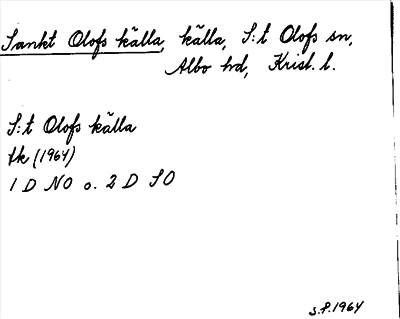 Sankt Olofs källa, källa, S:t Olofs sn,
Albo hd, Krist. l.
S:t Olofs källa
tk (1964)
1 D NO o. 2 D SO
S.F. 1964